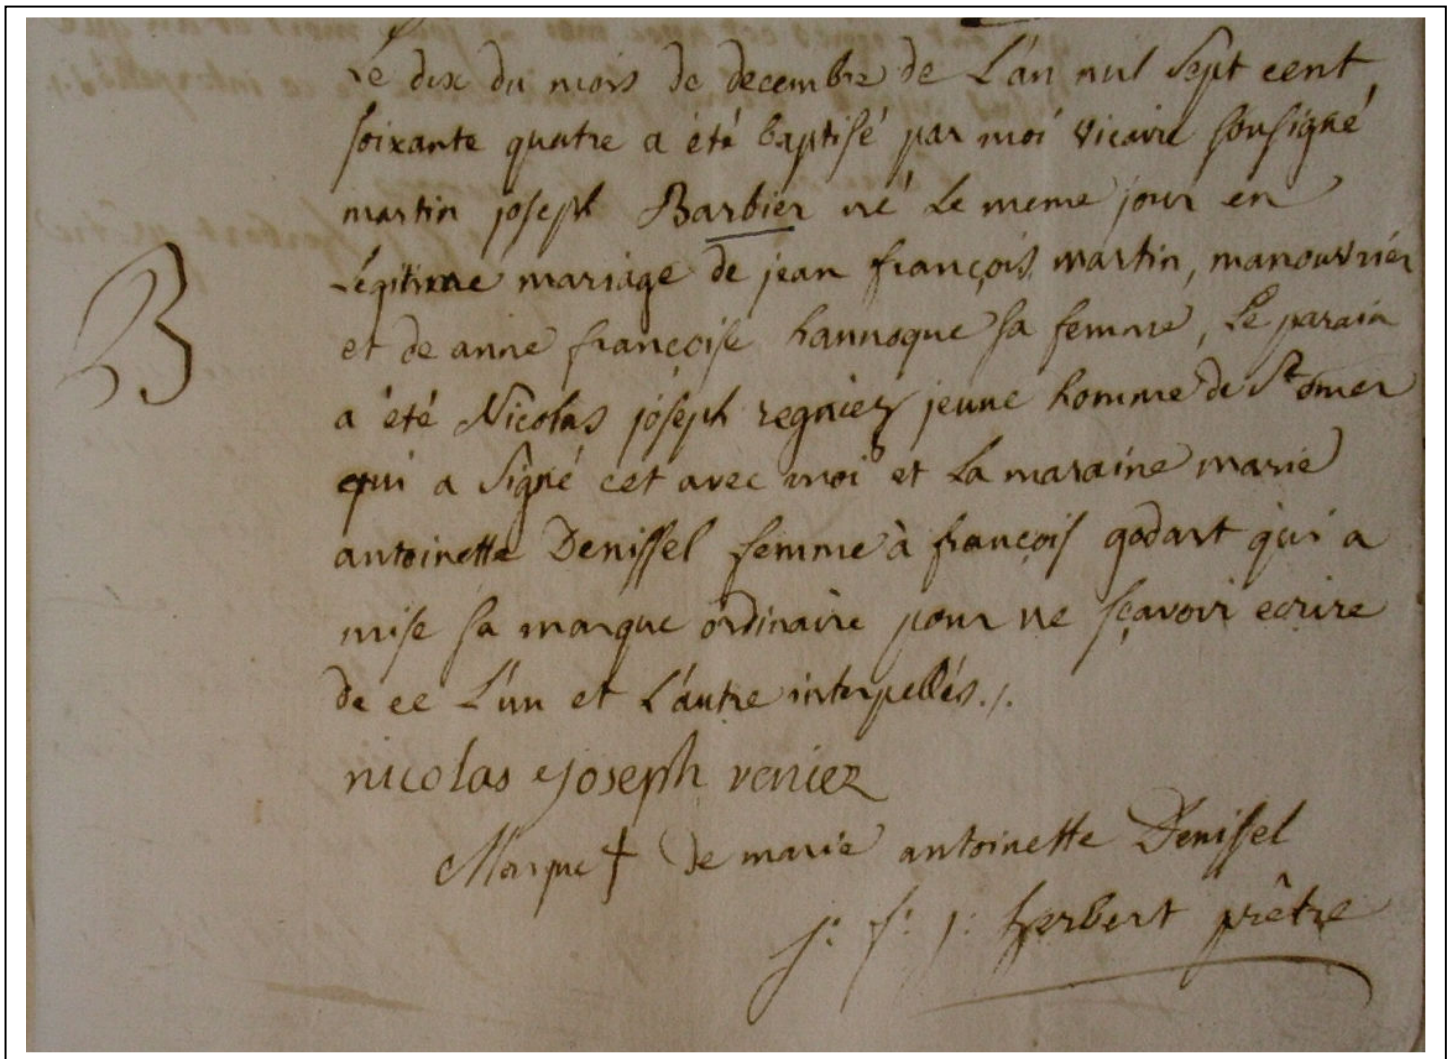 Le dix du mois de decembre de L'an mil sept cent
soixante quatre a été baptisé par moi vicaire sousigné
martin joseph Barbier né le meme jour en
Légitime mariage de jean françois martin, manouvrier
et de anne françoise hannoque sa femme, Le parain
a été Nicolas joseph regniez jeune homme de St omer
qui a signé cet avec moi et La maraine marie
antoinette Denissel femme à françois godart qui a
mise sa marque ordinaire pour ne sçavoir ecrire
de ce L'un et L'autre interpellés./.
B
nicolas joseph reniez
Marque † de marie antoinette Denissel
j: f: j: herbert prêtre